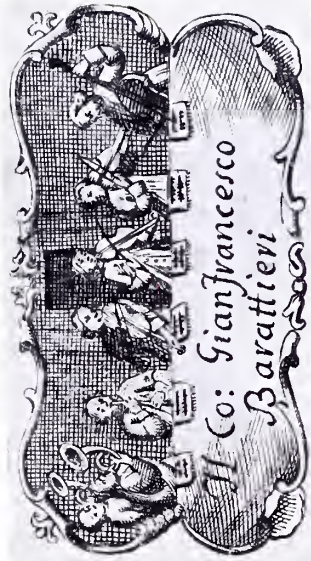 Il Co: Gianfrancesco
Barattieri